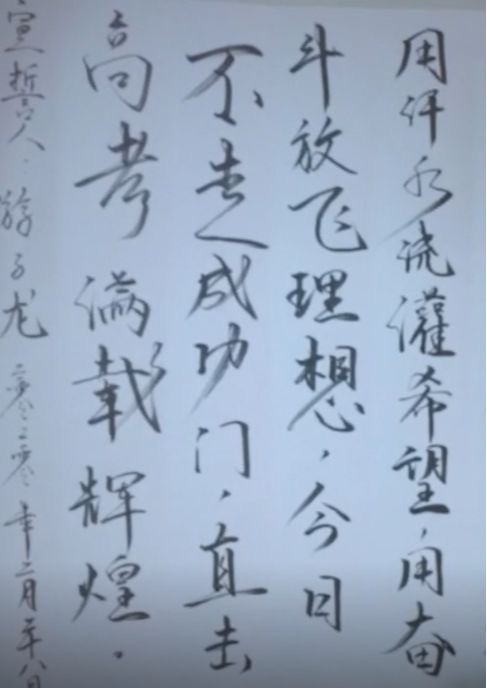 用汗水浇灌希望,用奋
斗放飞理想,今日
不走成功门,直击
高考满载辉煌.
宣誓人:子龙 二零二零年二月二十八日